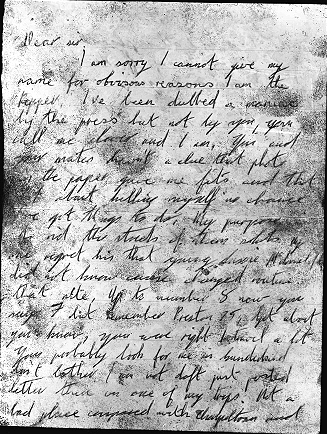 Dear sir
I am sorry I cannot give my
name for obvious reasons I am the
Ripper. I've been dubbed a maniac
by the press but not by you, you
call me clever and I am. You and
your mates haven't a clue that photo
in the paper gave me fits and that
bit about killing myself no chance
I've got things to do. My purpose
to rid the streets of them sluts. my
one regret his that young lassie Mcdonald
did not know cause changed routine
that nite. Up to number 8 now you
say 7 but remember Preston 75. Get about
you know. you were right I travel a bit
You probably look for me in Sunderland
don't bother I am not daft just posted
letter there on one of my trips. Not a
bad place compared with Chapeltown and